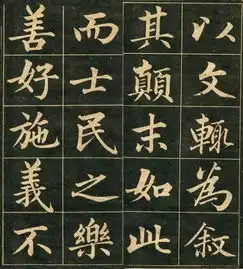 以文輙為敘
其顛末如此
而士民之樂
善好施義不